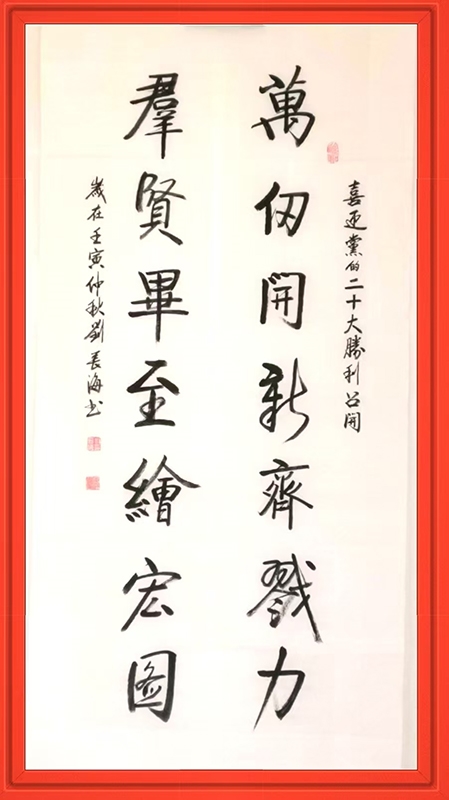 喜迎黨的二十大勝利召開
萬仞開新齊戮力
羣賢畢至繪宏圖
歲在壬寅仲秋劉長海书